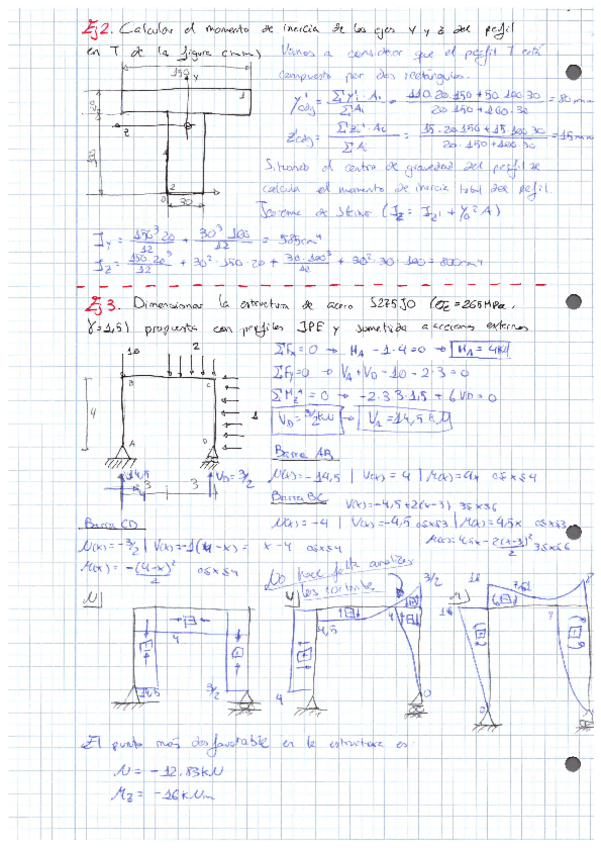 Ej 2. Calcular el momento de inercia de los ejes Y y Z del perfil
en T de la figura (mm) Vamos a considerar que el perfil T está
compuesto por dos rectángulos.
150
Y
1
Z
2
30
Y'cdg = ΣYi'·Ai / ΣAi = 110·20·150 + 50·100·30 / 20·150 + 100·30 = 80 mm
Z'cdg = ΣZi'·Ai / ΣAi = 15·20·150 + 15·100·30 / 20·150 + 100·30 = 15 mm
Situando el centro de gravedad del perfil se
calcula el momento de inercia total del perfil.
Teorema de Steiner (Iz = Iz' + Y0²·A)
Iy = 150³·20/12 + 30³·100/12 = 585 cm⁴
Iz = 150·20³/12 + 30²·150·20 + 30·100³/12 + 30²·30·100 = 800 cm⁴
Ej 3. Dimensionar la estructura de acero S275J0 (σE = 265 MPa,
γ = 1,5) propuesta con perfiles IPE y sometida a acciones externas
10
2
B
C
4
1
A
D
14,5
3
3
VD = 3/2
ΣFx = 0 → HA - 1·4 = 0 → HA = 4 kN
ΣFy = 0 → VA + VD - 10 - 2·3 = 0
ΣMz = 0 → -2·3
VA = 14,5 kN
Barra AB
N(x) = -14,5 | V(x) = 4 | M(x) = 4x 0≤x≤4
Barra BC
V(x) = -4,5 + 2(x-3) 3≤x≤6
N(x) = -4 | V(x) = -4,5 0≤x≤3 | M(x) = 4,5x 0≤x≤3
Barra CD
N(x) = -3/2 | V(x) = -1(4-x) = x-4 0≤x≤4
M(x) = -(4-x)²/2 0≤x≤4
No hace falta analizar
los cortantes
N
4
14,5
3/2
4,5
4
4
3/2
16
16
8
El punto más desfavorable en la estructura es:
N = -12.83 kN
Mz = -16 kNm